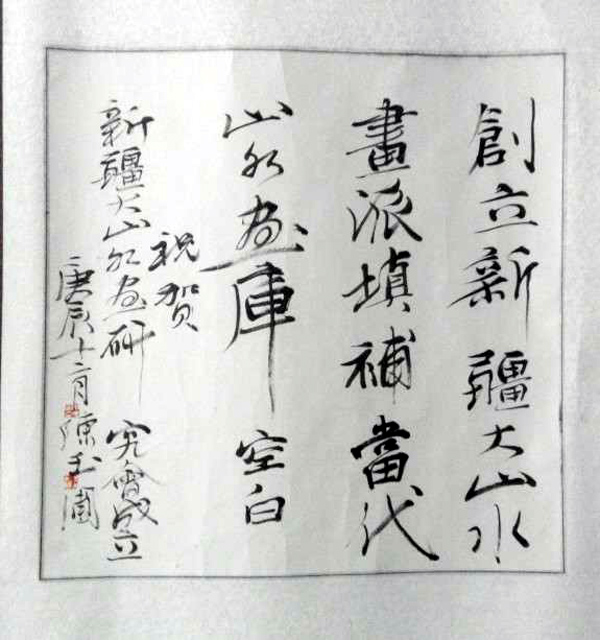 創立新疆大山水
畫派填補當代
山水畫庫空白
祝賀
新疆大山水画研究會成立
庚辰十二月陳玉圃